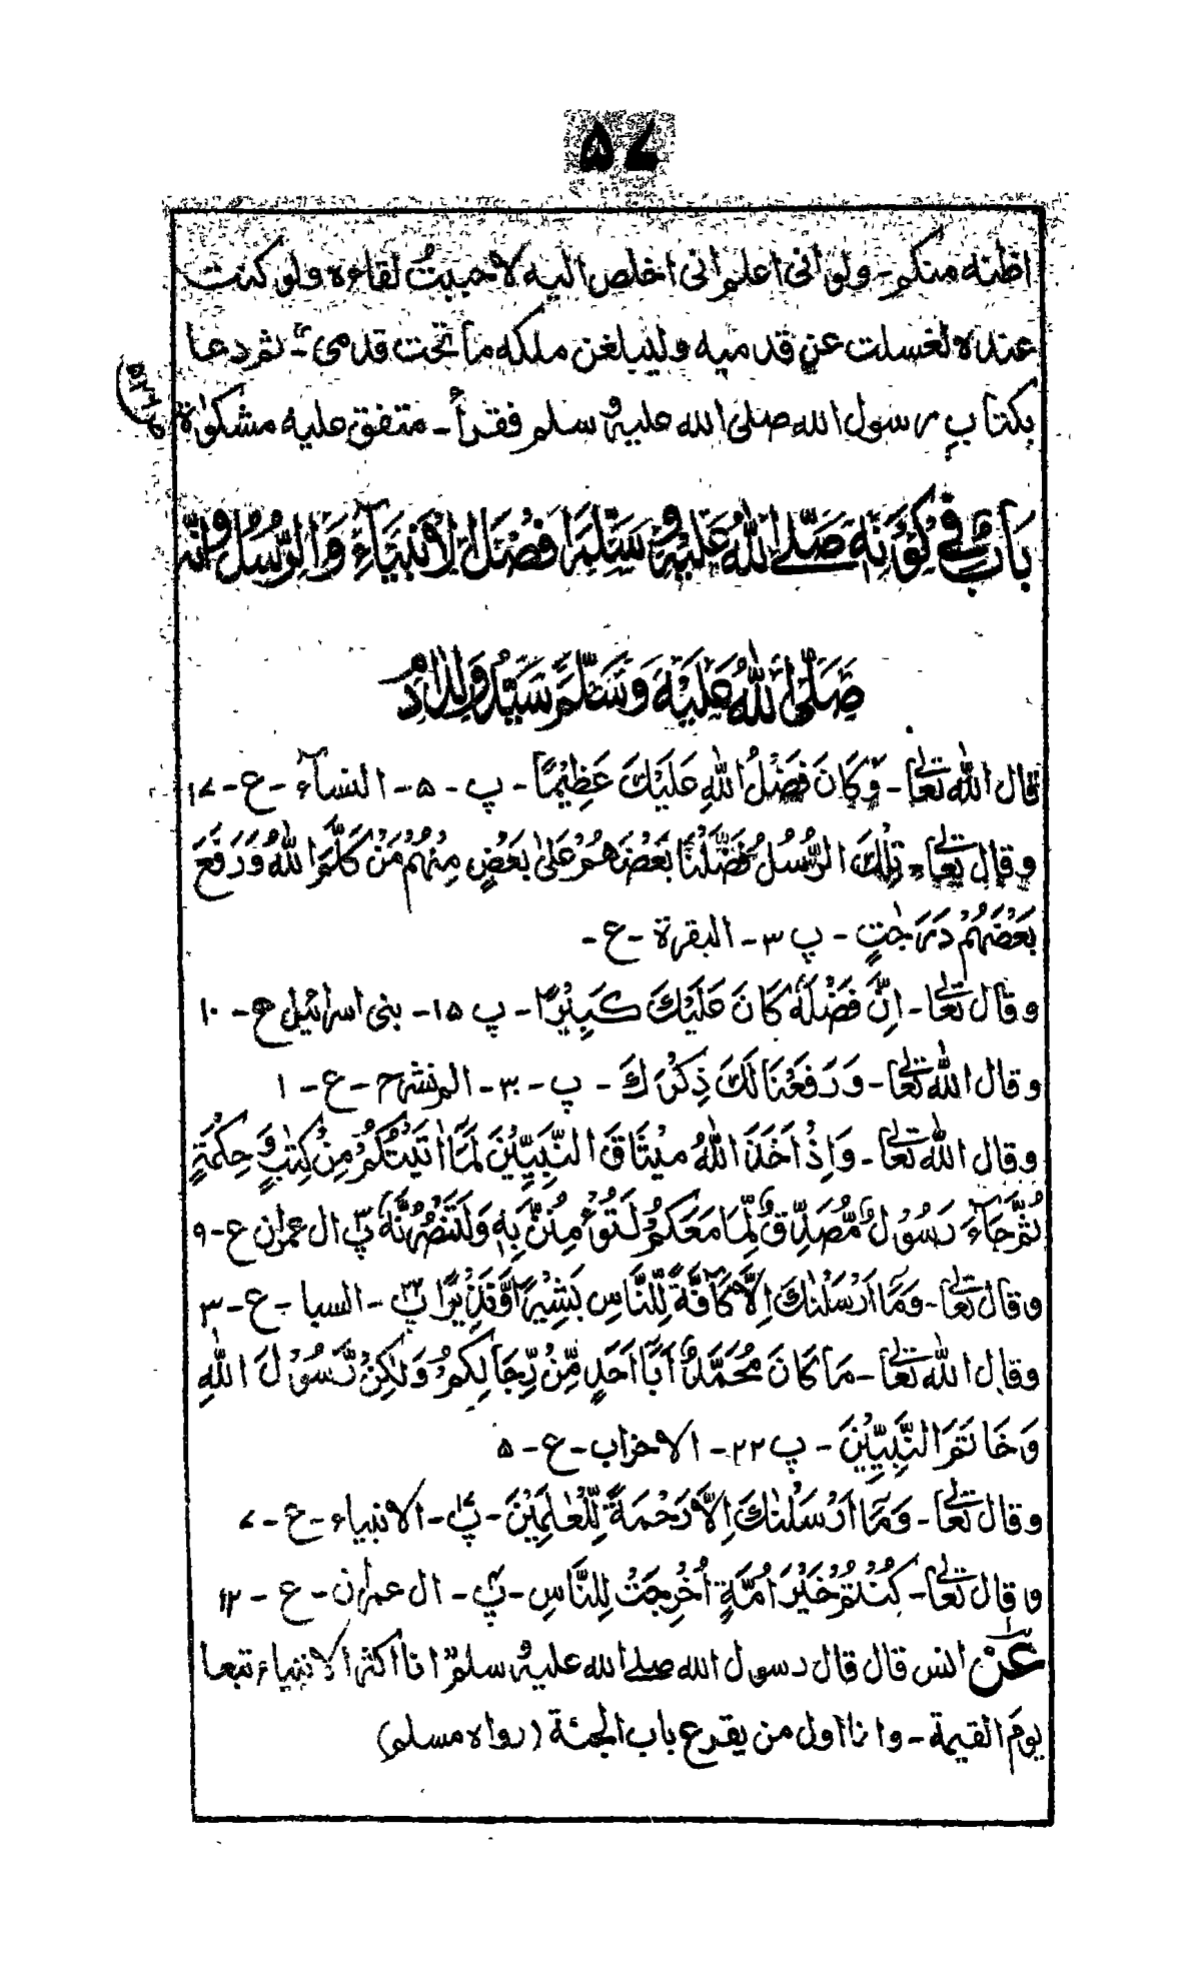 ۵۷
اظنه منكم - ولو انى اعلم انى اخلص اليه لاحببتُ لقاءه ولو كنت
عنده لغسلت عن قدميه وليبلغن ملكه ما تحت قدمىّ - ثم دعا
بكتاب رسول الله صلى الله عليه وسلم فقرأ - متفق عليه مشكوٰة
بَابٌ فِيْ كَوْنِهٖ صَلَّے اللهُ عَلَيْهِ وَسَلَّمَ اَفْضَلَ الْاَنْبِيَآءِ وَالرُّسُلِ وَاَنَّهٗ
صَلَّى اللهُ عَلَيْهِ وَسَلَّمَ سَيِّدُ وَلَدِ اٰدَمَ
قال الله تعالٰى - وَكَانَ فَضْلُ اللهِ عَلَيْكَ عَظِيْمًا - پ - ۵ - النسآء - ع - ۱۷
وقال تعالٰى - تِلْكَ الرُّسُلُ فَضَّلْنَا بَعْضَهُمْ عَلٰى بَعْضٍ مِنْهُمْ مَنْ كَلَّمَ اللهُ وَرَفَعَ
بَعْضَهُمْ دَرَجٰتٍ - پ ۳ - البقرة - ع -
وقال تعالٰى - اِنَّ فَضْلَهٗ كَانَ عَلَيْكَ كَبِيْرًا - پ ۱۵ - بنى اسرائيل ع - ۱۰
وقال الله تعالٰى - وَرَفَعْنَا لَكَ ذِكْرَكَ - پ - ۳۰ - الم نشرح - ع - ۱
وقال الله تعالٰى - وَاِذْ اَخَذَ اللهُ مِيْثَاقَ النَّبِيّٖنَ لَمَآ اٰتَيْتُكُمْ مِنْ كِتٰبٍ وَّحِكْمَةٍ
ثُمَّ جَآءَ رَسُوْلٌ مُّصَدِّقٌ لِّمَا مَعَكُمْ لَتُؤْمِنُنَّ بِهٖ وَلَتَنْصُرُنَّهٗ پ۳ ال عمرٰن ع - ۹
وقال تعالٰى - وَمَآ اَرْسَلْنٰكَ اِلَّا كَآفَّةً لِّلنَّاسِ بَشِيْرًا وَّنَذِيْرًا پ۲۲ - السبا - ع - ۳
وقال الله تعالٰى - مَا كَانَ مُحَمَّدٌ اَبَآ اَحَدٍ مِّنْ رِّجَالِكُمْ وَلٰكِنْ رَّسُوْلَ اللهِ
وَخَاتَمَ النَّبِيّٖنَ - پ ۲۲ - الاحزاب - ع - ۵
وقال تعالٰى - وَمَآ اَرْسَلْنٰكَ اِلَّا رَحْمَةً لِّلْعٰلَمِيْنَ - پ۱۷ - الانبياء - ع - ۷
وقال تعالٰى - كُنْتُمْ خَيْرَ اُمَّةٍ اُخْرِجَتْ لِلنَّاسِ - پ۴ - ال عمرٰن - ع - ۱۲
عَنْ انس قال قال رسول الله صلے الله عليه وسلم انا اكثر الانبياء تبعا
يومَ القيمة - وانا اول من يقرع باب الجنة (رواه مسلم)